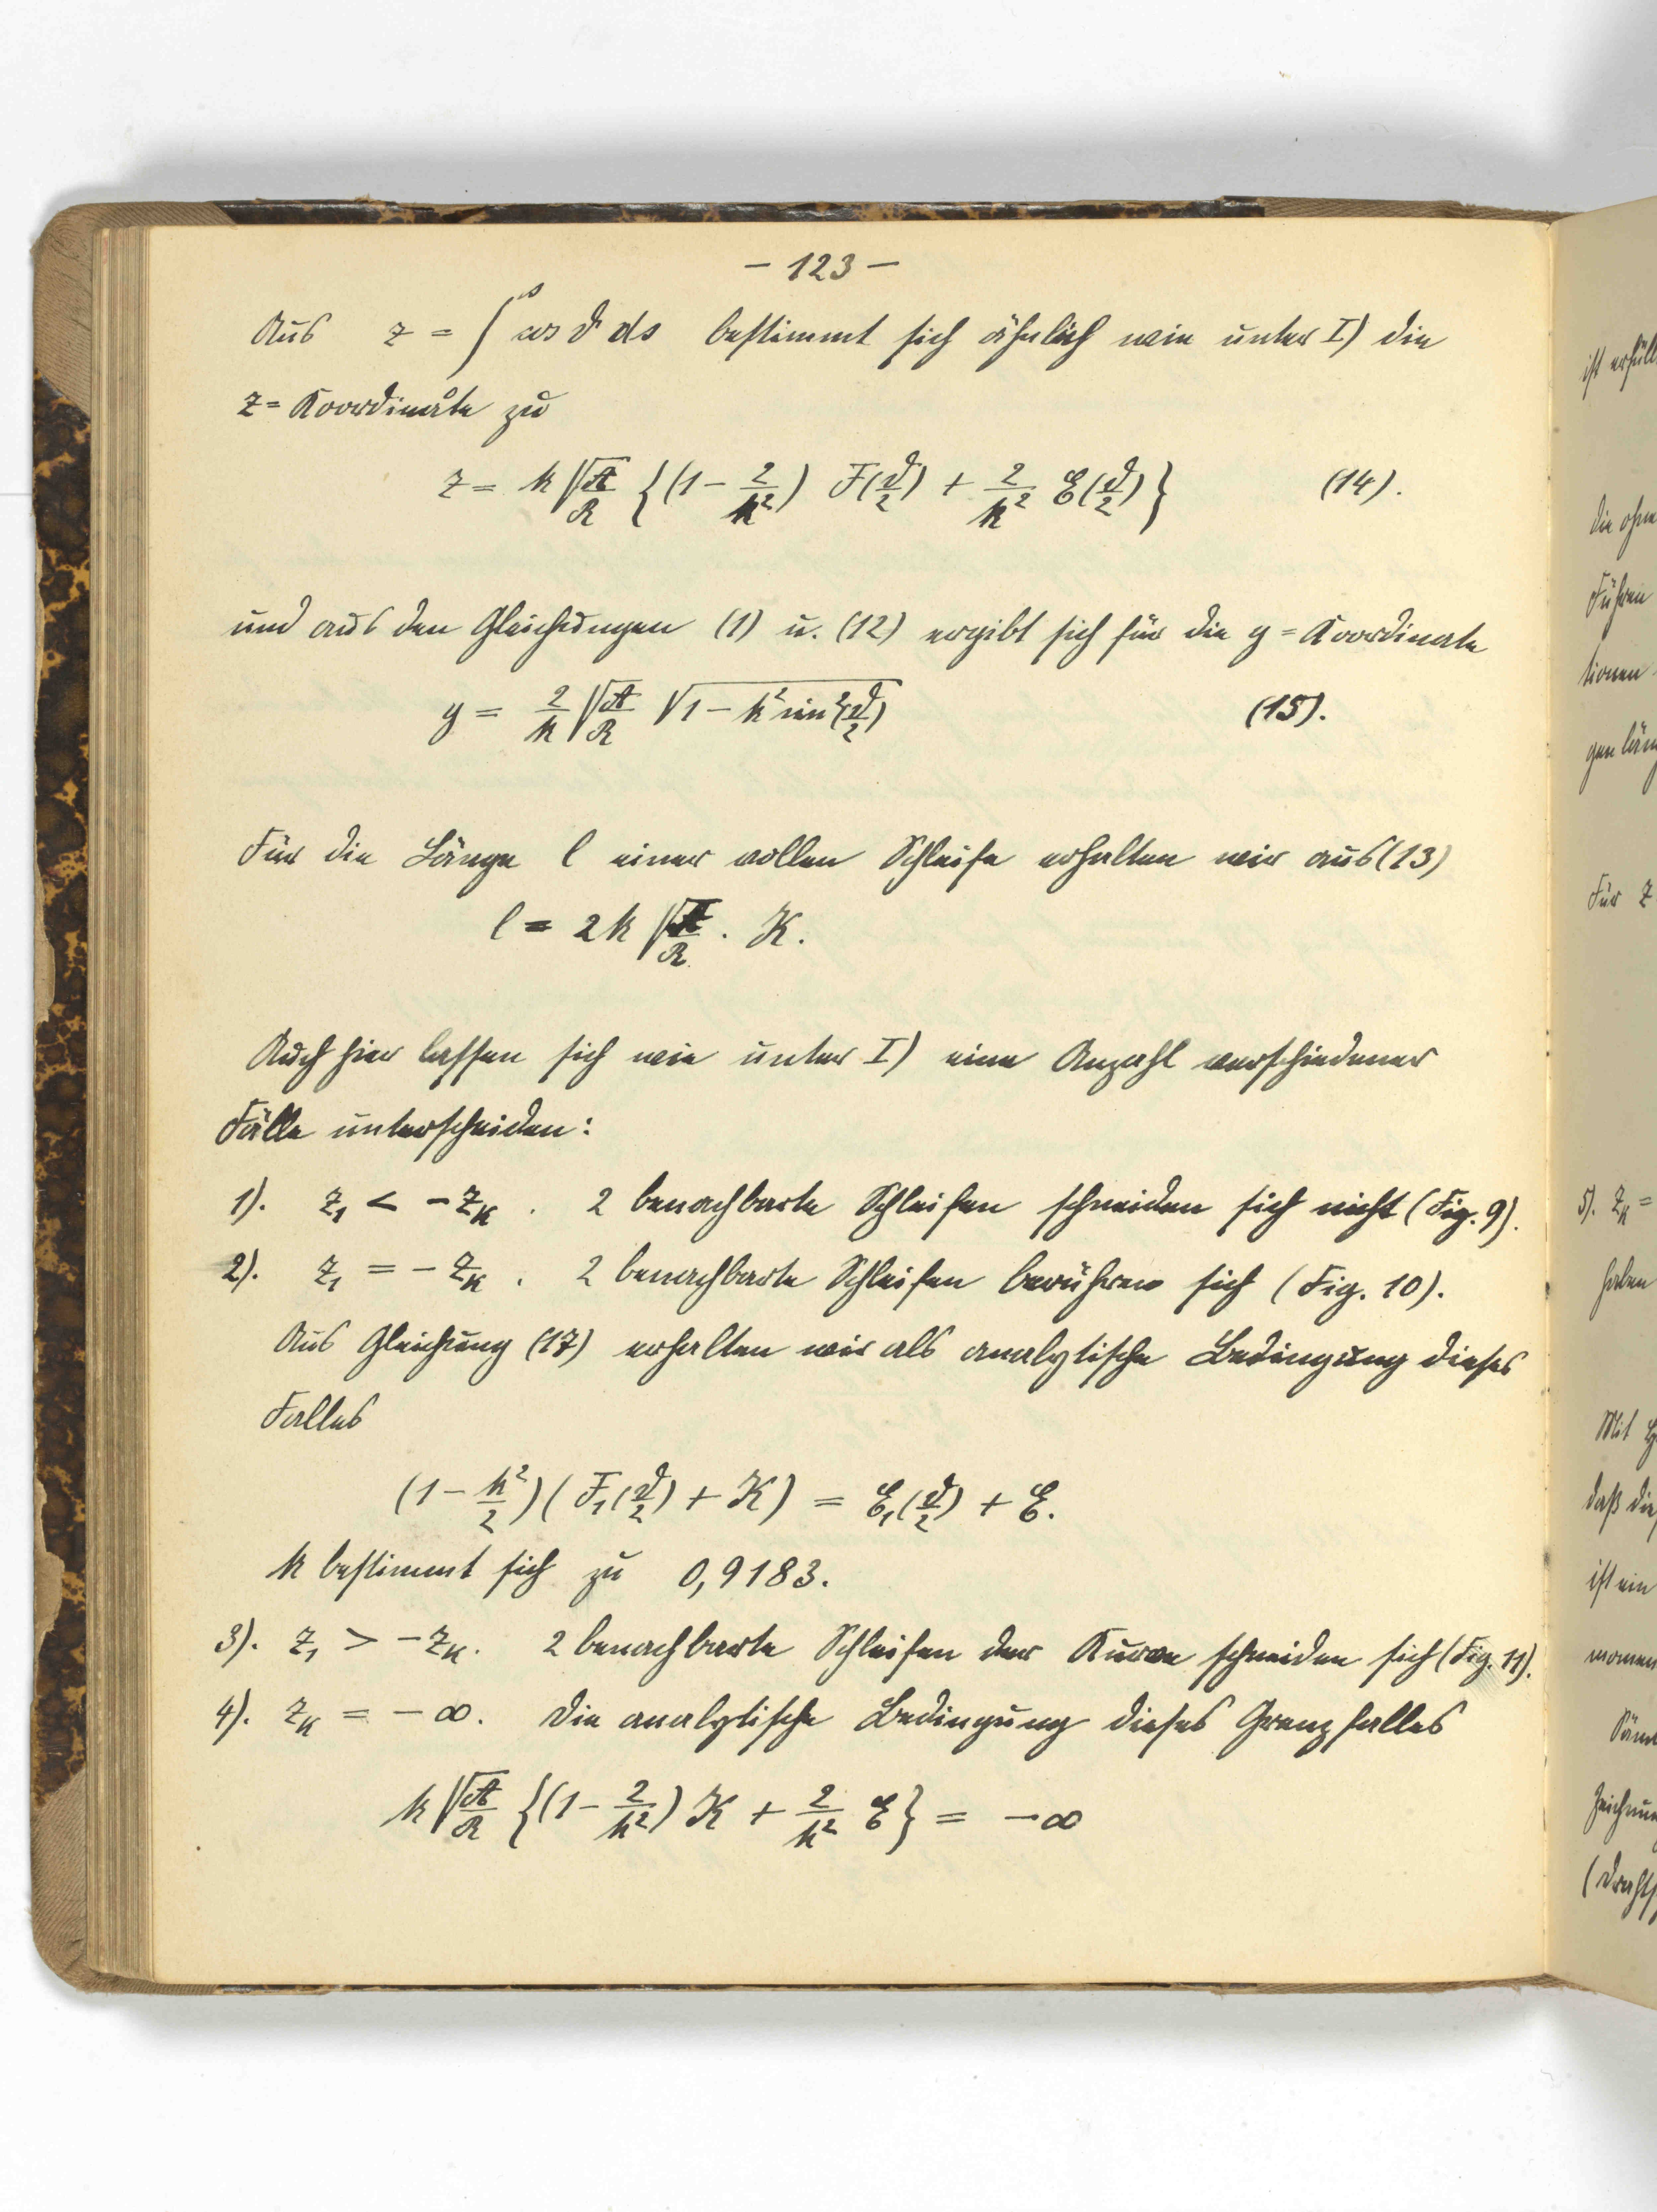 – 123 –
Aus z = ∫ˢ cos ϑ ds bestimmt sich ähnlich wie unter I) die
z=Koordinate zu
z = k √(A/R) {(1 – 2/k²) F(ϑ/2) + 2/k² E(ϑ/2)} (14).
und aus den Gleichungen (1) u. (12) ergibt sich für die y=Koordinate
y = 2/k √(A/R) √(1 – k² sin²(ϑ/2)) (15).
Für die Länge l einer vollen Schleife erhalten wir aus (13)
l = 2k √(A/R) . K.
Auch hier lassen sich wie unter I) eine Anzahl verschiedener
Fälle unterscheiden:
1). z₁ < –z_K . 2 benachbarte Schleifen schneiden sich nicht (Fig. 9).
2). z₁ = –z_K . 2 benachbarte Schleifen berühren sich (Fig. 10).
Aus Gleichung (17) erhalten wir als analytische Bedingung dieses
Falles
(1 – k²/2)(F₁(ϑ/2) + K) = E₁(ϑ/2) + E.
k bestimmt sich zu 0,9183.
3). z₁ > –z_K. 2 benachbarte Schleifen der Kurve schneiden sich (Fig. 11).
4). z_K = – ∞. Die analytische Bedingung dieses Grenzfalles
k √(A/R) {(1 – 2/k²) K + 2/k² E} = – ∞
ist
die
Führen
tionen
Für z
5). z_K =
haben
Mit
daß
ist ein